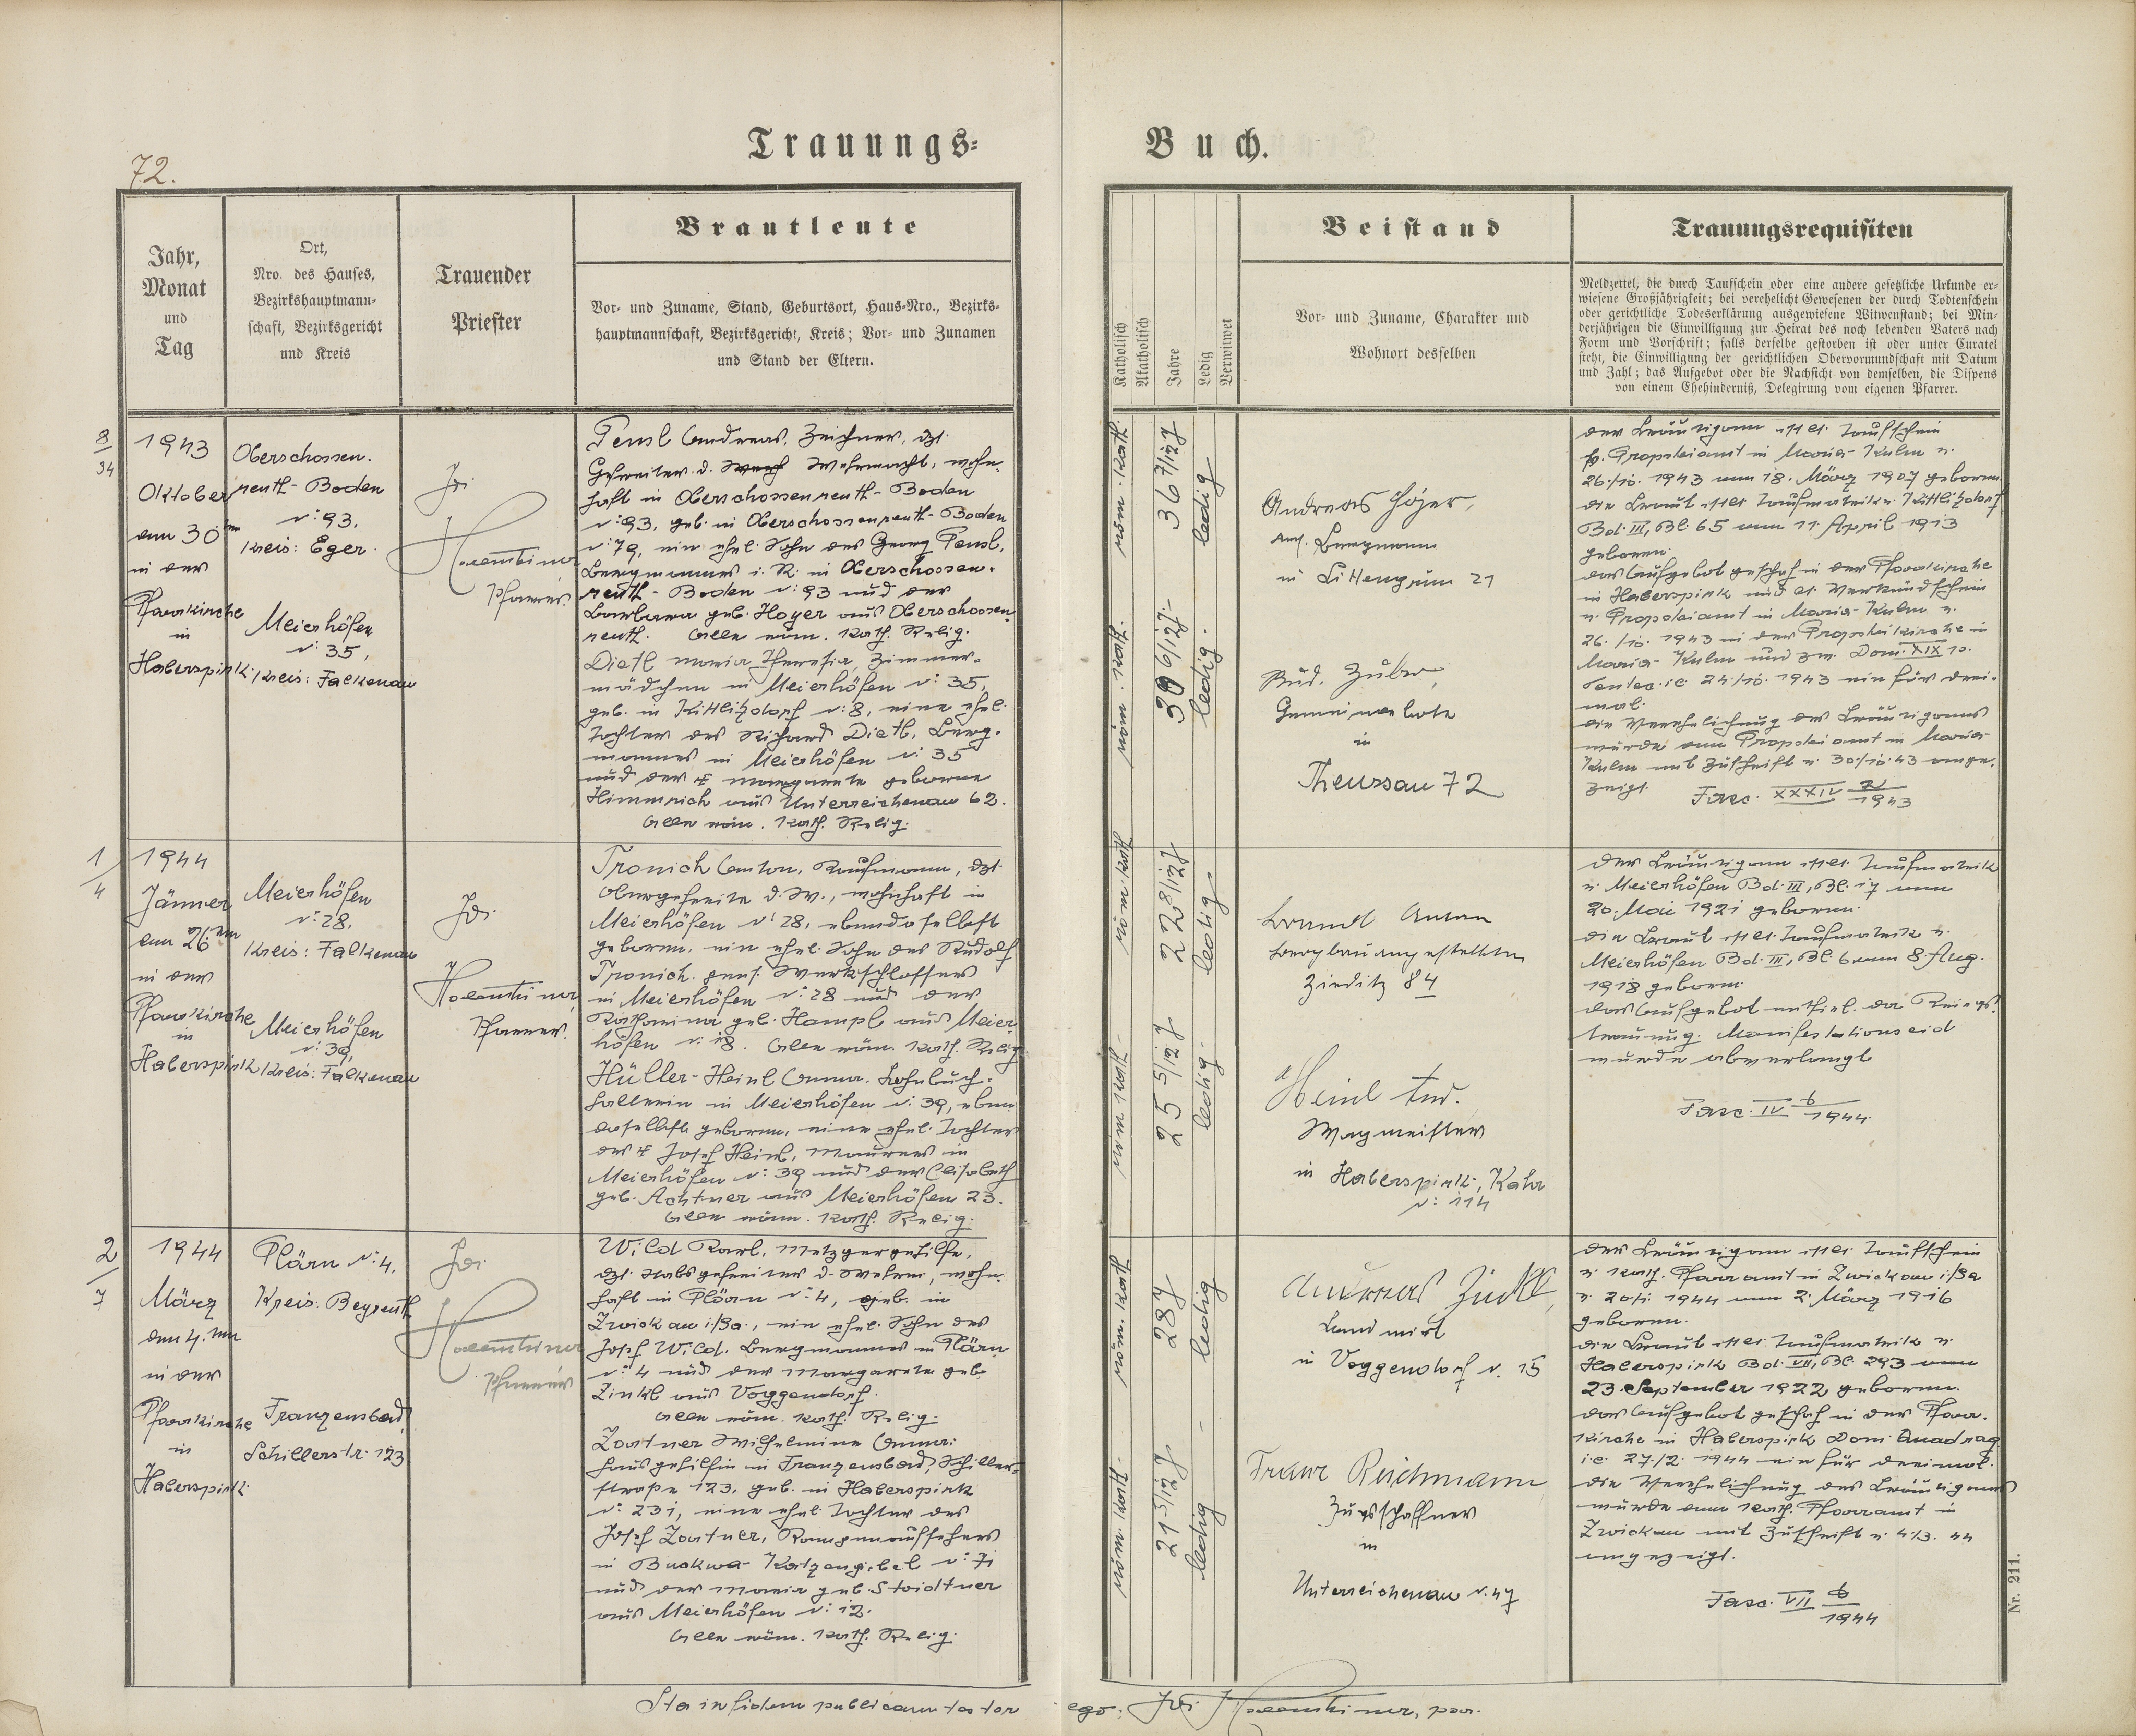 72.
Trauungs=
Buch.
Jahr,
Monat
und
Tag
Ort,
Nro. des Hauses,
Bezirkshauptmann-
schaft, Bezirksgericht
und Kreis
Trauender
Priester
Brautleute
Vor- und Zuname, Stand, Geburtsort, Haus-Nro., Bezirks-
hauptmannschaft, Bezirksgericht, Kreis; Vor- und Zunamen
und Stand der Eltern.
Katholisch
Akatholisch
Jahre
Ledig
Verwitwet
Beistand
Vor- und Zuname, Charakter und
Wohnort desselben
Trauungsrequisiten
Meldzettel, die durch Taufschein oder eine andere gesetzliche Urkunde er-
wiesene Großjährigkeit; bei verehelicht Gewesenen der durch Todtenschein
oder gerichtliche Todeserklärung ausgewiesene Witwenstand; bei Min-
derjährigen die Einwilligung zur Heirat des noch lebenden Vaters nach
Form und Vorschrift; falls derselbe gestorben ist oder unter Curatel
steht, die Einwilligung der gerichtlichen Obervormundschaft mit Datum
und Zahl; das Aufgebot oder die Nachsicht von demselben, die Dispens
von einem Ehehinderniß, Delegirung vom eigenen Pfarrer.
8/34
1943
Oktober
am 30ten
in der
Pfarrkirche
in
Haberspirk.
Oberschossen-
reuth-Boden
N: 93.
Kreis: Eger.
Meierhöfen
N: 35,
Kreis: Falkenau
Pfarrer.
Pensl Andreas, Zeichner, dzt.
Gefreiter d. Wehrmacht, wohn-
haft in Oberschossenreuth-Boden
N: 93, geb. in Oberschossenreuth-Boden
N: 79, ein ehel. Sohn des Georg Pensl,
Bergmannes i. R. in Oberschossen-
reuth-Boden N: 93 und der
Barbara geb. Hoyer aus Oberschossen-
reuth. Alle röm. kath. Relig.
Dietl Maria Theresia, Zimmer-
mädchen in Meierhöfen N: 35,
geb. in Kittlitzdorf N: 8, eine ehel.
Tochter des Richard Dietl, Berg-
mannes in Meierhöfen N: 35
und der † Margarete geborene
Himmrich aus Unterreichenau 62.
Alle röm. kath. Relig.
röm. kath.
36 7/12 J
ledig
röm. kath.
30 6/12 J.
ledig.
Andreas Höjer,
Bergmann
in Littengrün 21
Rud. Zuber,
Gemeindebote
in
Theussau 72
Der Bräutigam ist lt. Taufschein
v. Propsteiamt in Maria-Kulm v.
26./10. 1943 am 18. März 1907 geboren.
Die Braut ist lt. Taufmatrik v. Kittlitzdorf
Bd. III, Bl. 65 am 11. April 1913
geboren.
Das Aufgebot geschah in der Pfarrkirche
in Haberspirk und lt. Verkündschein
v. Propsteiamt in Maria-Kulm v.
26./10. 1943 in der Propsteikirche in
Maria-Kulm und zw. Dom. XIX p.
Pentec. i.e. 24./10. 1943 ein für drei-
mal.
Die Verehelichung des Bräutigams
wurde dem Propsteiamt in Maria-
Kulm mit Zuschrift v. 30./10.43 ange-
zeigt.
Fasc. XXXIV 1943
1/4
1944
Jänner
am 26ten
in der
Pfarrkirche
in
Haberspirk
Meierhöfen
N: 28.
Kreis: Falkenau
Meierhöfen
N: 39,
Kreis: Falkenau
Pfarrer.
Tronich Anton, Kaufmann, dzt.
Obergefreite d. W., wohnhaft in
Meierhöfen N: 28, ebendaselbst
geboren, ein ehel. Sohn des Rudolf
Tronich, Werkschlossers
in Meierhöfen N: 28 und der
Katharina geb. Hampl aus Meier-
höfen N: 18. Alle röm. kath. Relig
Hüller-Heinl Anna, Lohnbuch-
halterin in Meierhöfen N: 39, eben-
daselbst geboren, eine ehel. Tochter
des † Josef Heinl, Maurers in
Meierhöfen N: 39 und der Elisabeth
geb. Achtner aus Meierhöfen 23.
Alle röm. kath. Relig.
röm. kath
22 8/12 J
ledig.
röm. kath.
25 5/12 J
ledig.
Brandl Anton
Bergbauangestellter
Zieditz 84
Heinl And.
Wagmeister
in Haberspirk, Kahr
N: 114
Der Bräutigam ist lt. Taufmatrik
v. Meierhöfen Bd. III, Bl. 17 am
20. Mai 1921 geboren.
Die Braut ist lt. Taufmatrik v.
Meierhöfen Bd. III, Bl. 6 am 8. Aug.
1918 geboren.
Das Aufgebot entfiel, da Kriegs-
trauung. Manifestationseid
wurde abverlangt
Fasc. IV 6/1944.
2/7
1944
März
den 4. ten
in der
Pfarrkirche
in
Haberspirk.
Plärn N: 4.
Kreis: Beyreuth
Franzensbad,
Schillerstr. 123
Pfarrer
Wild Karl, Metzgergehilfe,
dzt. Stabsgefreiter d. Wehrm., wohn-
haft in Plärn N: 4, geb. in
Zwickau i/Sa., ein ehel. Sohn des
Josef Wild, Bergmannes in Plärn
N: 4 und der Margarete geb.
Zinkl aus Voggendorf.
Alle röm. kath. Relig.
Zartner Wilhelmine Anna,
Hausgehilfin in Franzensbad, Schiller-
straße 123, geb. in Haberspirk
N: 231, eine ehel. Tochter des
Josef Zartner, Rampenaufsehers
in Buckwa-Katzengiebel N: 71
und der Maria geb. Stoidtner
aus Meierhöfen N: 12.
Alle röm. kath. Relig.
röm. kath
28 J
ledig
röm. kath.
21 5/12 J
ledig
Andreas Zinkl,
Landwirt
in Voggendorf N. 15
Franz Reichmann
Zugsschaffner
in
Unterreichenau N. 47
Der Bräutigam ist lt. Taufschein
v. kath. Pfarramt in Zwickau i/Sa
v. 20./1. 1944 am 2. März 1916
geboren.
Die Braut ist lt. Taufmatrik v.
Haberspirk Bd. VII, Bl. 293 am
23. September 1922 geboren.
Das Aufgebot geschah in der Pfarr-
kirche in Haberspirk Dom. Quadrag.
i.e. 27./2. 1944 ein für dreimal.
Die Verehelichung des Bräutigams
wurde dem kath. Pfarramt in
Zwickau mit Zuschrift v. 4./3. 44
angezeigt.
Fasc. VII 6/1944
Nr. 211.
Ita in fidem publicam testor
ego: